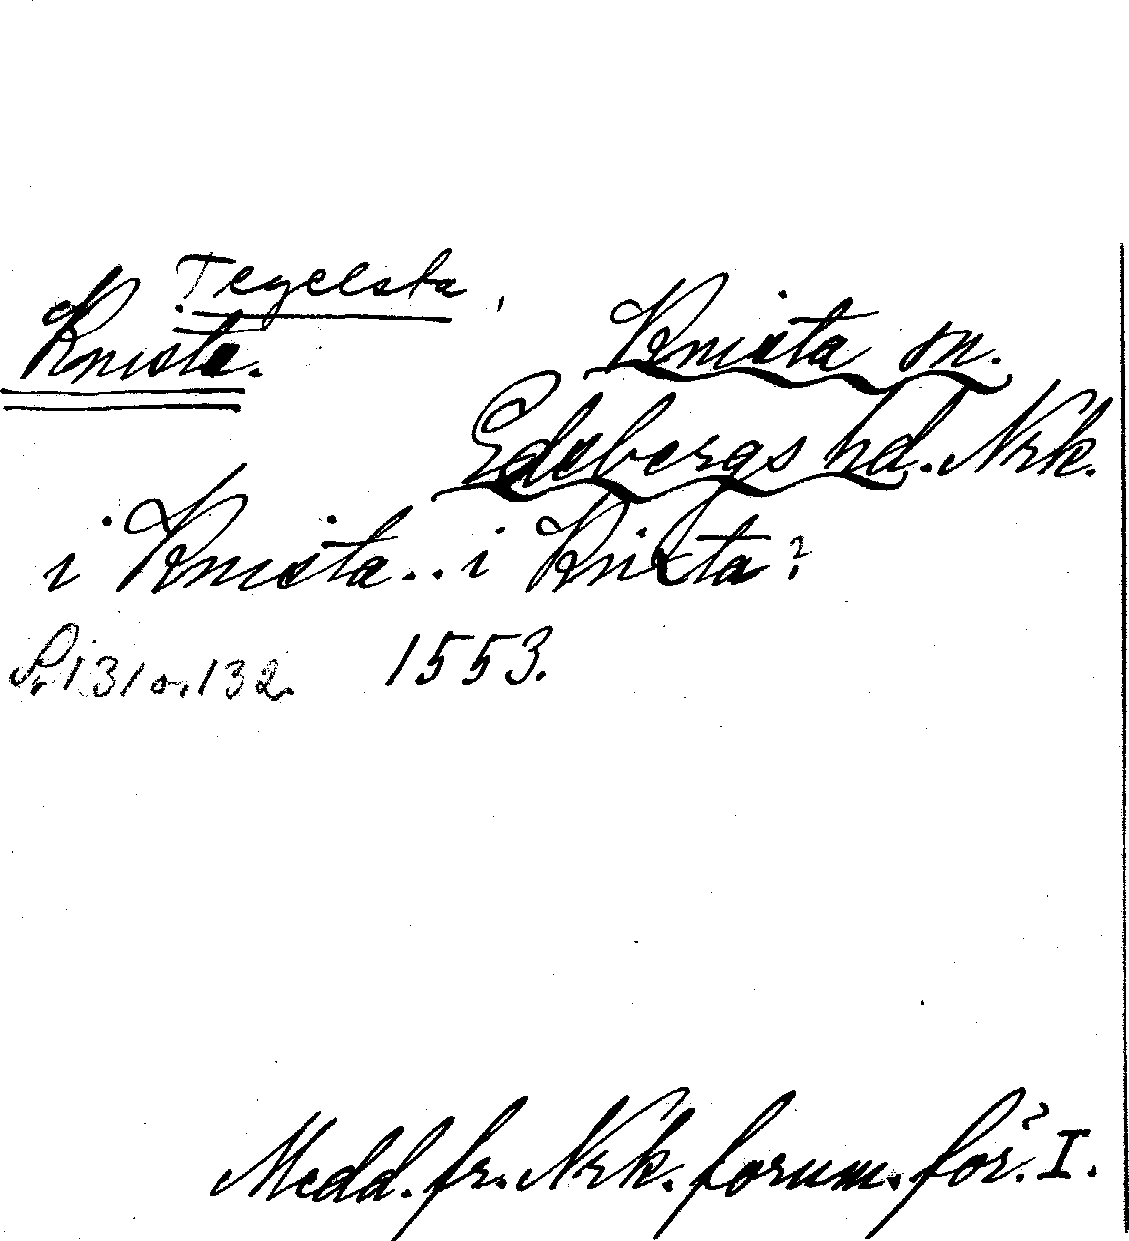 Tegelsta,
Knista. Knista sn.
Edsbergs hd. Nrk.
i Knista.. i Knixta?
S. 131 o. 132. 1553.
Medd. fr. Nrk. fornm. för. I.